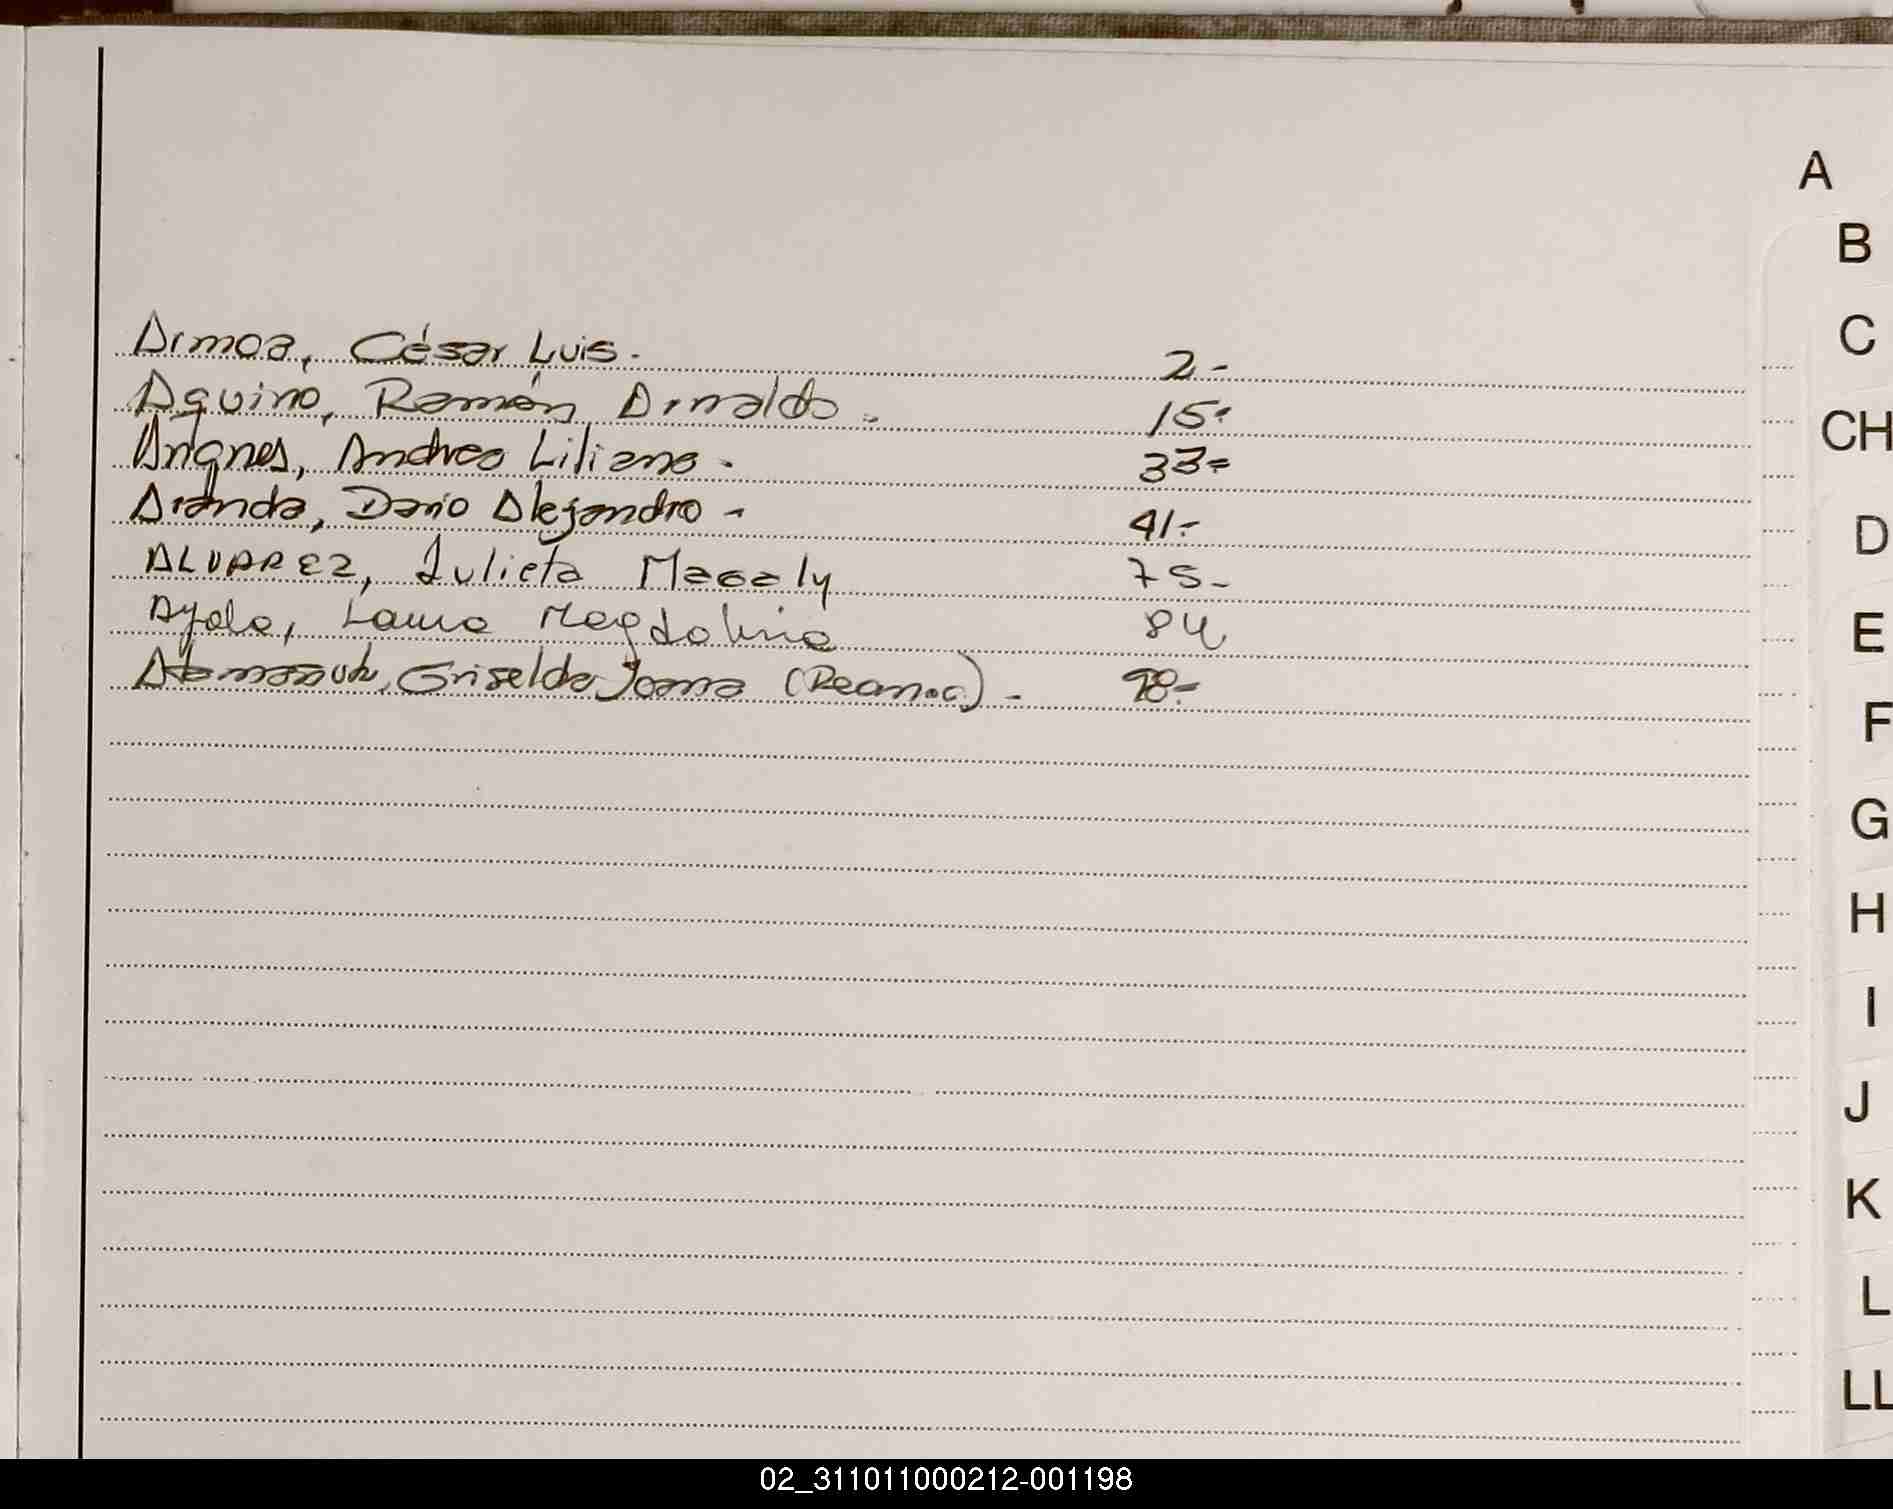 Armoa, César Luis. 2-
Aquino, Ramón Arnaldo. 15-
Angnes, Andrea Liliana. 33-
Aranda, Dario Alejandro - 41-
ALVAREZ, Julieta Magaly 75-
Ayala, Laura Magdalina 84
Griselda Joana 98-
A
B
C
CH
D
E
F
G
H
I
J
K
L
LL
02_311011000212-001198